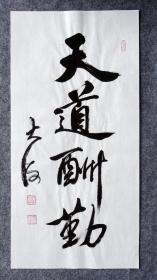 天道酬勤
大海